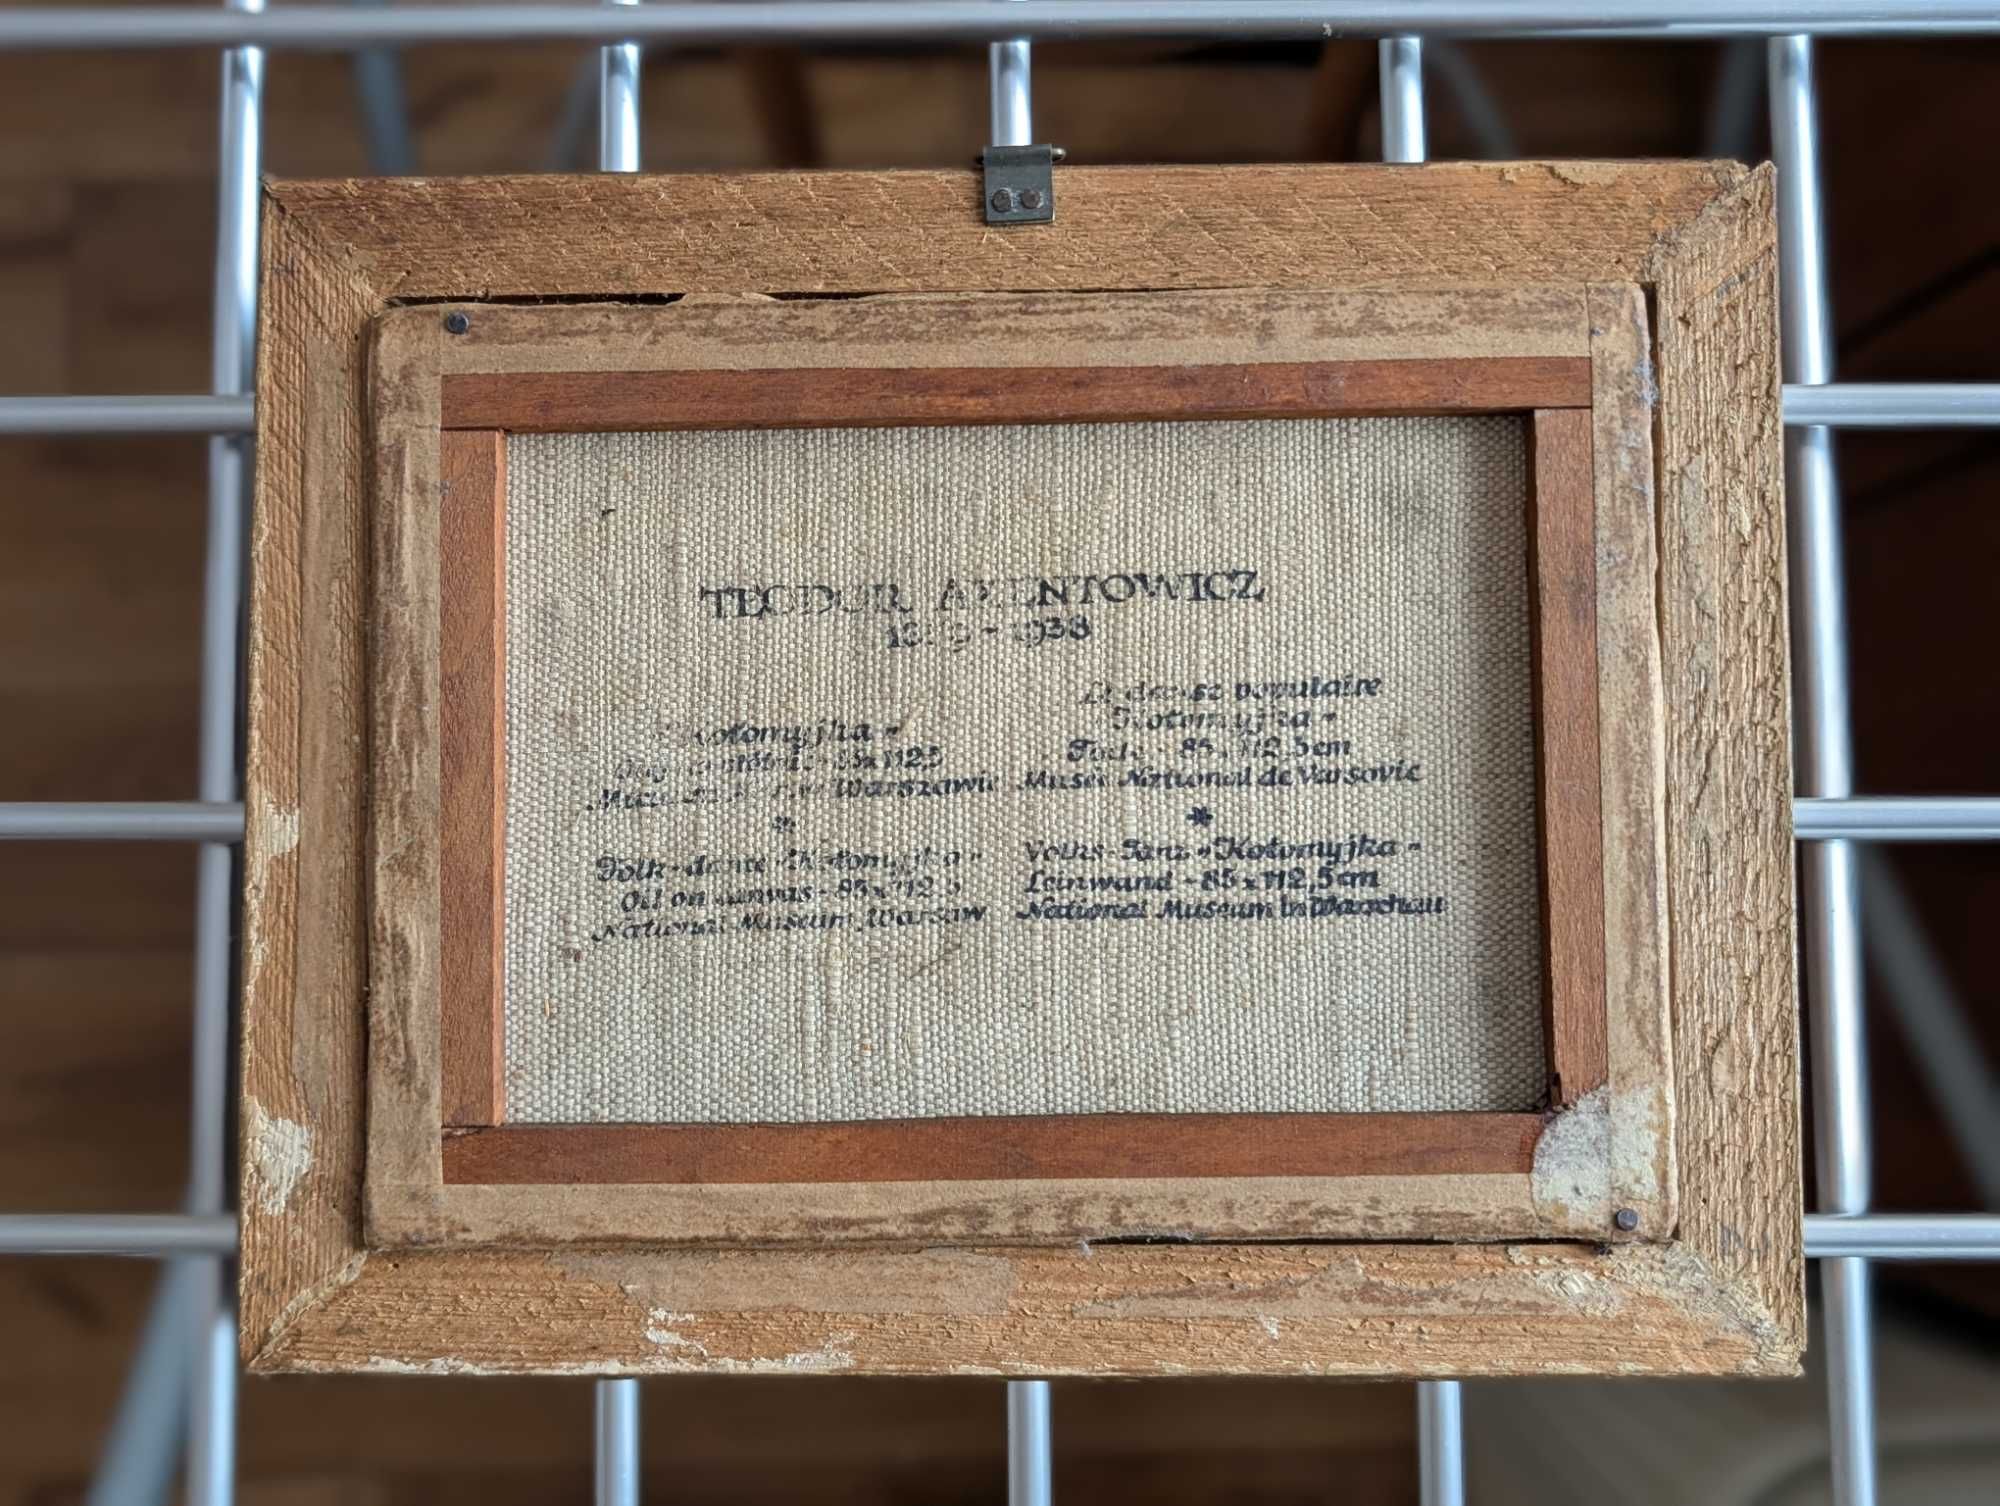 TEODOR AXENTOWICZ
1859 - 1938
Kołomyjka -
85x112,5
Warszawie
*
Folk-dance "Kołomyjka -
Oil on canvas - 85x112,5
National Museum, Warsaw
La danse populaire
"Kołomyjka -
Toile - 85x112,5 cm
Musée National de Varsovie
*
Volks-Tanz "Kołomyjka -
Leinwand - 85x112,5 cm
National Museum in Warschau